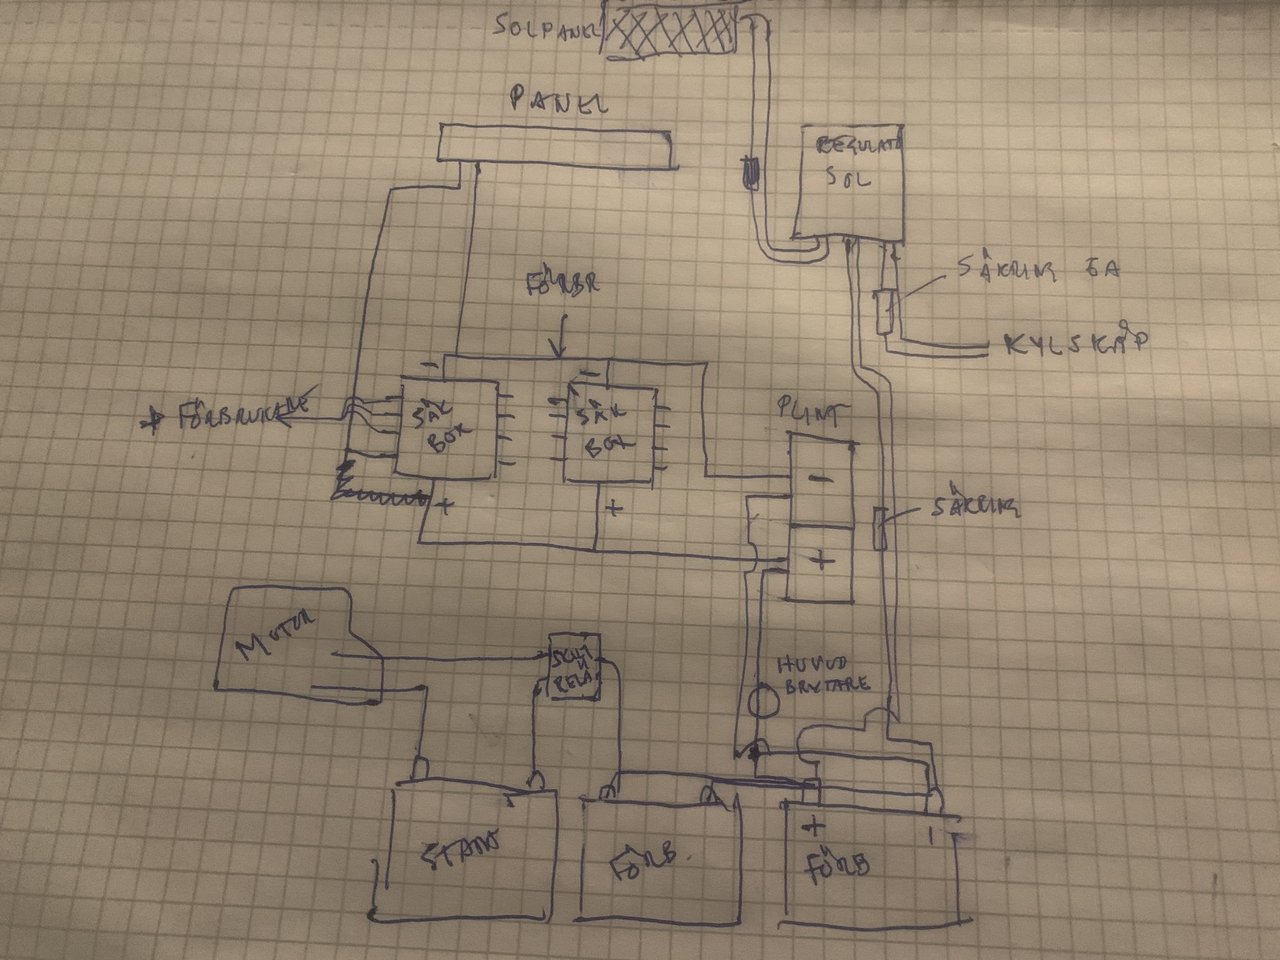 SOLPANEL
PANEL
REGULATO
SOL
SÄKRING 5A
FÖRBR
KYLSKÅP
FÖRBRUKARE
-
-
SÄK
BOX
SÄK
BOX
PLINT
-
+
+
+
SÄKRING
MOTOR
SKILJ
RELÄ
HUVUD
BRYTARE
START
FÖRB.
+ -
FÖRB